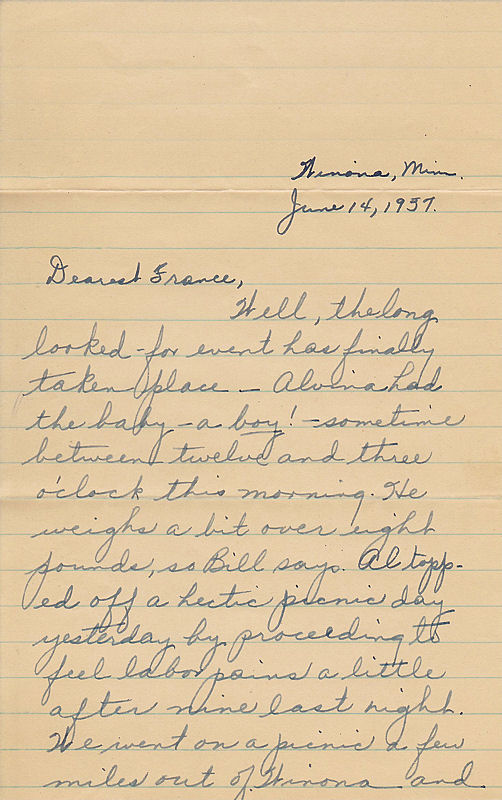 Winona, Minn.
June 14, 1937.
Dearest France,
Well, the long
looked-for event has finally
taken place — Alvina had
the baby - a boy! - sometime
between twelve and three
o'clock this morning. He
weighs a bit over eight
pounds, so Bill says. Al topp-
ed off a hectic picnic day
yesterday by proceeding to
feel labor pains a little
after nine last night.
We went on a picnic a few
miles out of Winona and